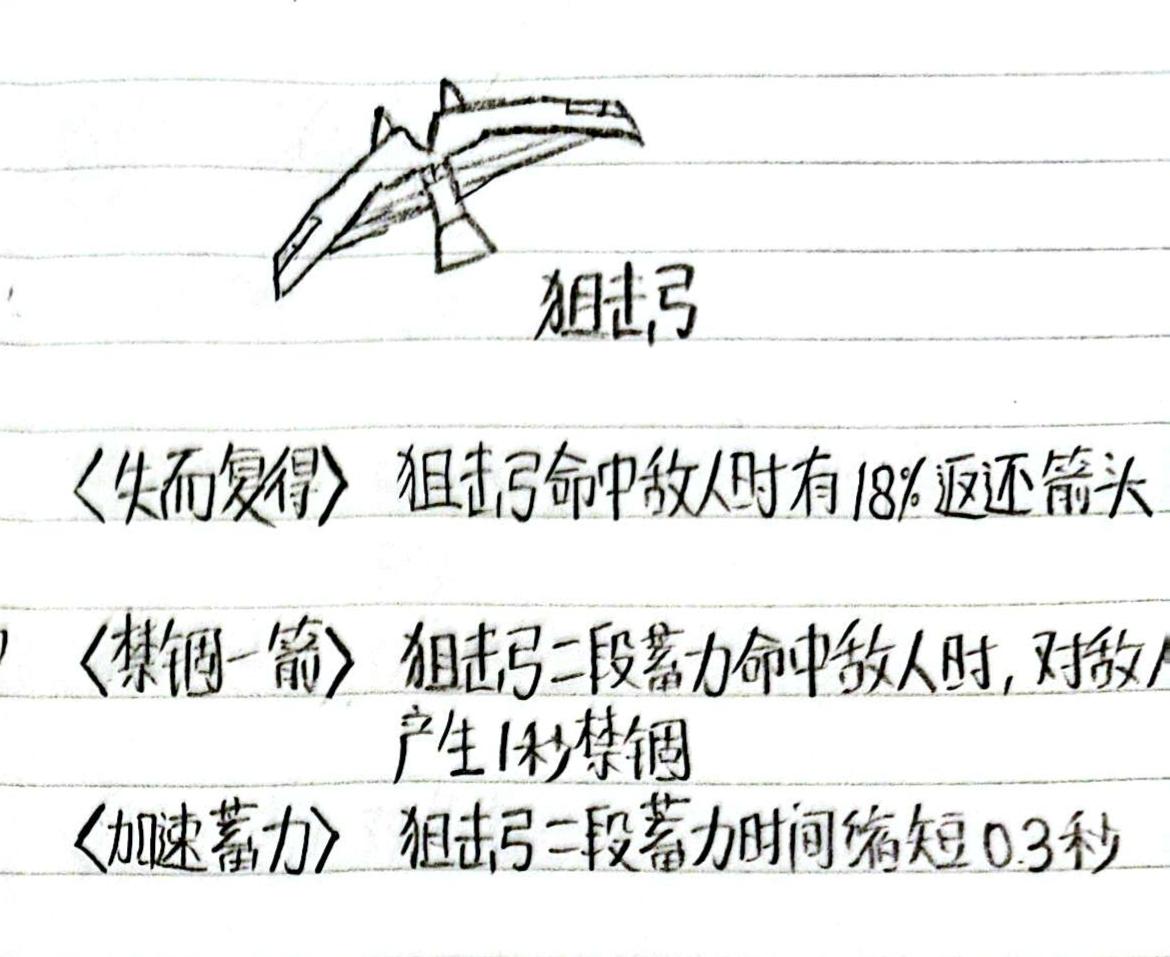 狙击弓
〈失而复得〉 狙击弓命中敌人时有18%返还箭头
〈禁锢一箭〉 狙击弓二段蓄力命中敌人时，对敌人
产生1秒禁锢
〈加速蓄力〉 狙击弓二段蓄力时间缩短0.3秒